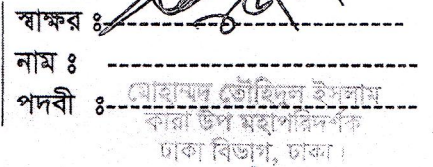 স্বাক্ষর ঃ
নাম ঃ
পদবী ঃ মোহাম্মদ তৌহিদুল ইসলাম
কারা উপ মহাপরিদর্শক
ঢাকা বিভাগ, ঢাকা।